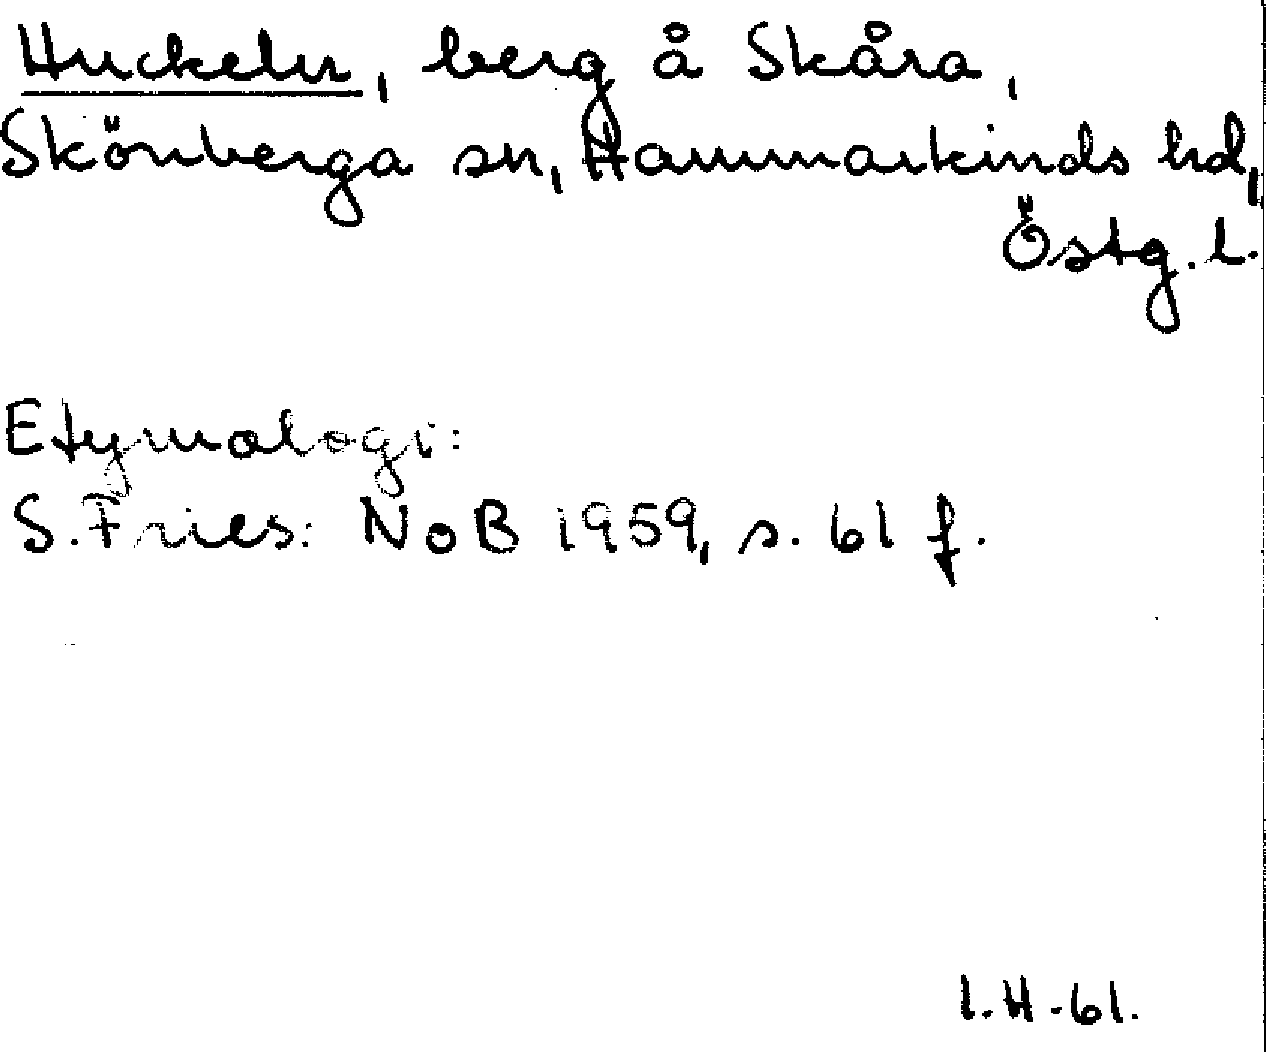 Huckeln, berg å Skåra,
Skönberga sn, Hammarkinds hd,
Östg. l.
Etymologi:
S. Fries: NoB 1959, s. 61 f.
I.H.-61.